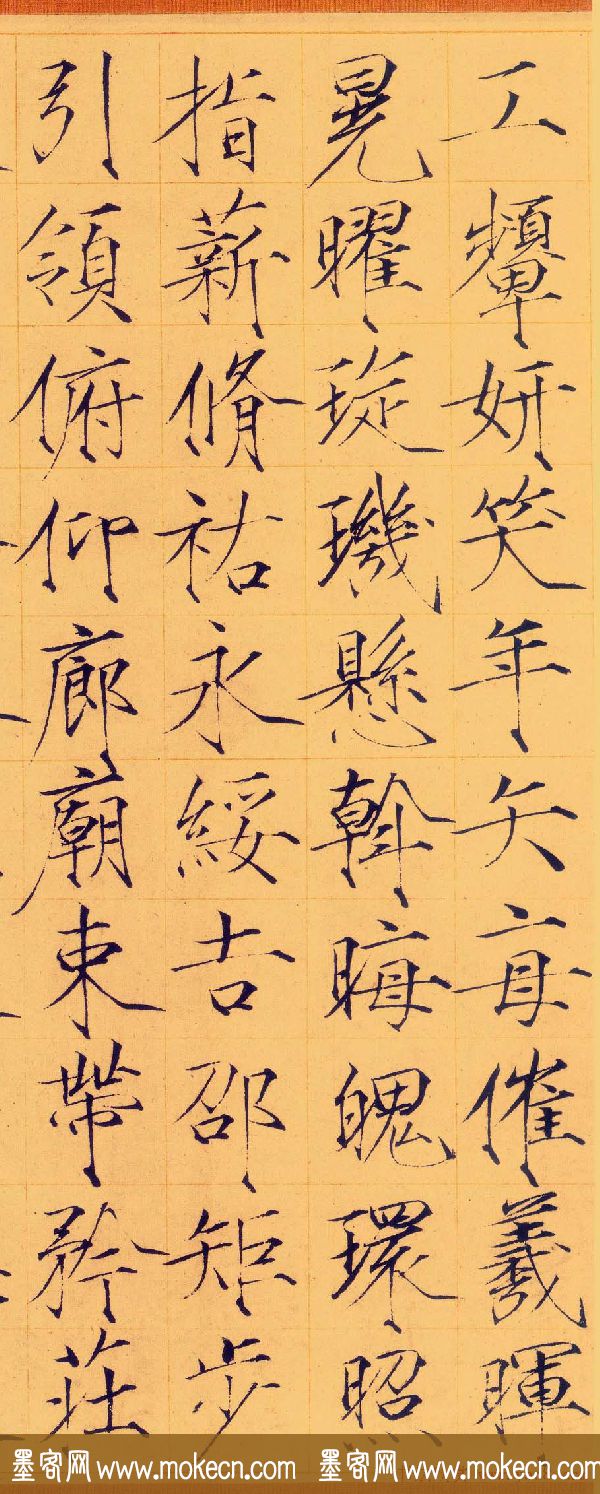 工顰妍笑年矢每催羲暉
晃曜琁璣懸斡晦魄環照
指薪脩祜永綏吉邵矩步
引領俯仰廊廟束帶矜莊
墨客网 www.mokecn.com 墨客网 www.mokecn.com